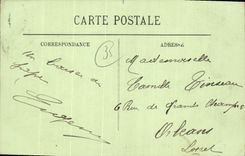 CARTE POSTALE
CORRESPONDANCE
ADRESSE
Un baiser de
Eugène
Mademoiselle
Camille Tinseau
6 Rue des Grands Champs
Orléans
Loiret